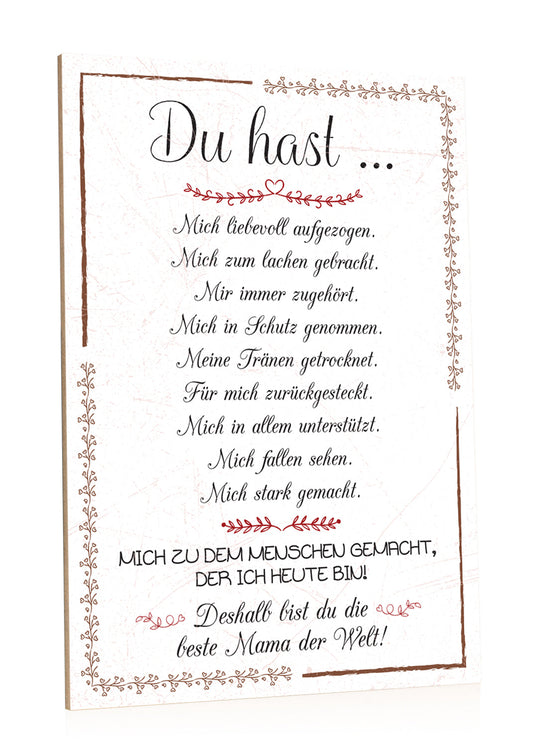 Du hast ...
Mich liebevoll aufgezogen.
Mich zum lachen gebracht.
Mir immer zugehört.
Mich in Schutz genommen.
Meine Tränen getrocknet.
Für mich zurückgesteckt.
Mich in allem unterstützt.
Mich fallen sehen.
Mich stark gemacht.
MICH ZU DEM MENSCHEN GEMACHT,
DER ICH HEUTE BIN!
Deshalb bist du die
beste Mama der Welt!